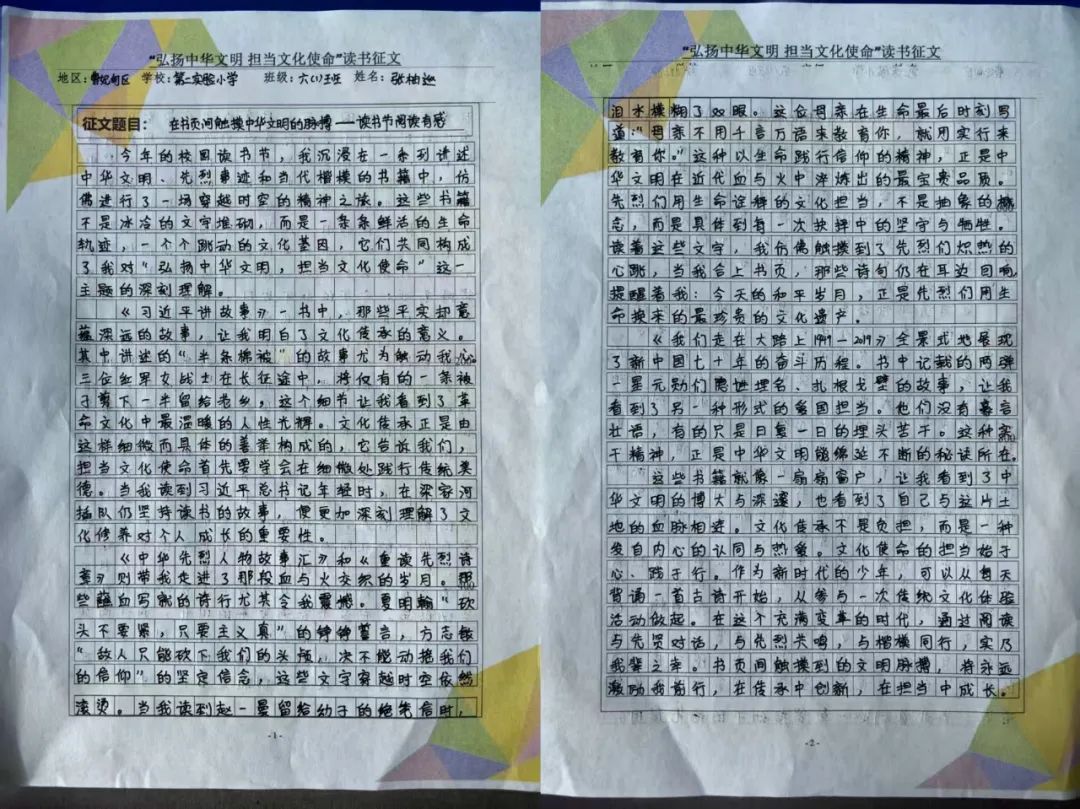 “弘扬中华文明 担当文化使命”读书征文
地区：曹妃甸区 学校：第二实验小学 班级：六(1)班 姓名：张柏
征文题目： 在书页间触摸中华文明的脉搏——读书节阅读有感
今年的校园读书节，我沉浸在一系列讲述
中华文明、先烈事迹和当代楷模的书籍中，仿
佛进行了一场穿越时空的精神之旅。这些书籍
不是冰冷的文字堆砌，而是一条条鲜活的生命
轨迹，一个个跳动的文化基因，它们共同构成
了我对“弘扬中华文明，担当文化使命”这一
主题的深刻理解。
《习近平讲故事》一书中，那些平实却意
蕴深远的故事，让我明白了文化传承的意义。
其中讲述的“半条棉被”的故事尤为触动我心
三位红军女战士在长征途中，将仅有的一条被
子剪下一半留给老乡，这个细节让我看到了革
命文化中最温暖的人性光辉。文化传承正是由
这样细微而具体的善举构成的，它告诉我们，
担当文化使命首先要学会在细微处践行传统美
德。当我读到习近平总书记年轻时，在梁家河
插队仍坚持读书的故事，便更加深刻理解了文
化修养对个人成长的重要性。
《中华先烈人物故事汇》和《重读先烈诗
章》则带我走进了那段血与火交织的岁月。那
些蘸血写就的诗行尤其令我震撼。夏明翰“砍
头不要紧，只要主义真”的铮铮誓言，方志敏
“敌人只能砍下我们的头颅，决不能动摇我们
的信仰”的坚定信念，这些文字穿越时空依然
滚烫。当我读到赵一曼留给幼子的绝笔信时，
-1-
“弘扬中华文明 担当文化使命”读书征文
泪水模糊了双眼。这位母亲在生命最后时刻写
道：“母亲不用千言万语来教育你，就用实行来
教育你。”这种以生命践行信仰的精神，正是中
华文明在近代血与火中淬炼出的最宝贵品质。
先烈们用生命诠释的文化担当，不是抽象的概
念，而是具体到每一次抉择中的坚守与牺牲。
读着这些文字，我仿佛触摸到了先烈们炽热的
心跳，当我合上书页，那些诗句仍在耳边回响，
提醒着我：今天的和平岁月，正是先烈们用生
命换来的最珍贵的文化遗产。
《我们走在大路上1949—2019》全景式地展现
了新中国七十年的奋斗历程。书中记载的两弹
一星元勋们隐姓埋名、扎根戈壁的故事，让我
看到了另一种形式的爱国担当。他们没有豪言
壮语，有的只是日复一日的埋头苦干。这种实
干精神，正是中华文明能绵延不断的秘诀所在。
这些书籍就像一扇扇窗户，让我看到了中
华文明的博大与深邃，也看到了自己与这片土
地的血脉相连。文化传承不是负担，而是一种
发自内心的认同与热爱。文化使命的担当始于
心、践于行。作为新时代的少年，可以从每天
背诵一首古诗开始，从参与一次传统文化体验
活动做起。在这个充满变革的时代，通过阅读
与先贤对话，与先烈共鸣，与楷模同行，实乃
我辈之幸。书页间触摸到的文明脉搏，将永远
激励我前行，在传承中创新，在担当中成长。
-2-